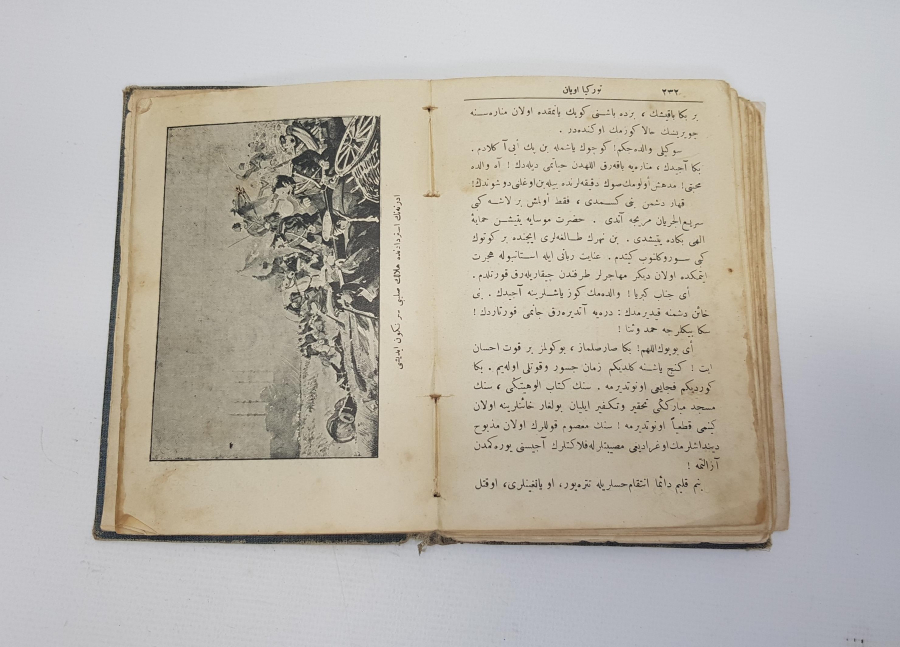 ٢٣٢
توركيا اويان
بر بكا باقيشك ، برده باشنى كويك يانمقده اولان مناره‌سنه
چويريشك حالا كوزمك اوكنده‌در .
سوكيلى والده‌جكم! كوچوك ياشمله بن پك ايى آكلادم .
بكا آجيدك ، مناره‌يه باقه‌رق اللهدن حياتمى ديله‌دك ! آه والده
محبتى! مدهش اولومك صوك دقيقه‌لرنده بيله بن اوغلنى دوشوندك!
قهار دشمن بنى كسمدى ، فقط اولمش بر لاشه كبى
سريع الجريان مريجه آتدى . حضرت موسايه يتيشن حمايهٔ
الهى بكاده يتيشدى . بن نهرك طالغه‌لرى ايچنده بر كوتوك
كبى سوروكلنوب كيتدم . عنايت ربانى ايله استانبوله هجرت
ايتمكده اولان ديكر مهاجرلر طرفندن چيقاريله‌رق قورتلدم .
أى جناب كبريا ! والده‌مك كوز ياشلرينه آجيدك . بنى
خائن دشمنه قيديرمدك : دره‌يه آتديره‌رق جانمى قورتاردك !
سكا بيكلرجه حمد وثنا !
أى بويوك اللهم! بكا صارصلماز ، بوكولمز بر قوت احسان
ايت ! كنج ياشنه كلديكم زمان جسور وقوتلى اوله‌يم . بكا
كورديكم فجايعى اونوتديرمه . سنك كتاب الوهيتكى ، سنك
مسجد مباركى تحقير وتكفير ايليان بولغار خائنلرينه اولان
كينمى قطعياً اونوتديرمه ! سنك معصوم قوللرك اولان مذبوح
دينداشلرمك اوغراديغى مصيبتلرله فلاكتلرك آجيسنى يوره‌كمدن
آزالتمه !
بنم قلبم دائما انتقام حسلريله تتره‌يور، او يانغينلرى، اوقتل
ادرنه‌نك استردادنده هلالك صليبى سر نكون ايديشى